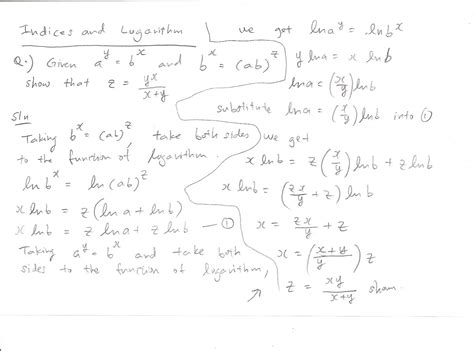 Indices and Logarithm
Q.) Given a^y = b^x and b^x = (ab)^z
show that z = yx/(x+y)
Sln
Taking b^x = (ab)^z, take both sides
to the function of logarithm.
ln b^x = ln (ab)^z
x ln b = z (ln a + ln b)
x ln b = z ln a + z ln b —— ①
Taking a^y = b^x and take both
sides to the function of logarithm,
we got ln a^y = ln b^x
y ln a = x ln b
ln a = (x/y) ln b
substitute ln a = (x/y) ln b into ①
we get
x ln b = z (x/y) ln b + z ln b
x ln b = (zx/y + z) ln b
x = zx/y + z
x = ((x+y)/y) z
z = xy/(x+y) shown.